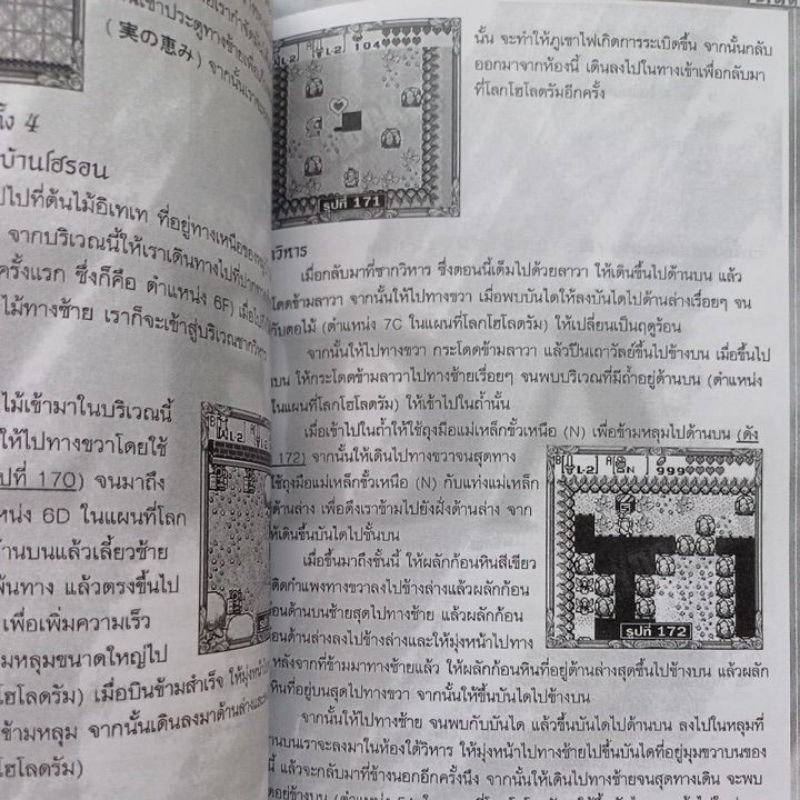 ( 実の恵み) จากนั้นเรา
ครั้ง 4
บ้านโฮรอน
ไปที่ต้นไม้อิเทเท ที่อยู่ทางเหนือของ
จากบริเวณนี้ให้เราเดินทางไปที่
ครั้งแรก ซึ่งก็คือ ตำแหน่ง 6F)
ไม้ทางซ้าย เราก็จะเข้าสู่บริเวณซากวิหาร
ไม้เข้ามาในบริเวณนี้
ให้ไปทางขวาโดยใช้
ปที่ 170) จนมาถึง
หน่ง 6D ในแผนที่โลก
ด้านบนแล้วเลี้ยวซ้าย
พ้นทาง แล้วตรงขึ้นไป
เพื่อเพิ่มความเร็ว
ามหลุมขนาดใหญ่ไป
โฮโลดรัม) เมื่อบินข้ามสำเร็จ ให้มุ่งหน้า
ข้ามหลุม จากนั้นเดินลงมาด้านล่าง
โฮโลดรัม)
L-2
L-2
104
รูปที่ 171
นั้น จะทำให้ภูเขาไฟเกิดการระเบิดขึ้น จากนั้นกลับ
ออกมาจากห้องนี้ เดินลงไปในทางเข้าเพื่อกลับมา
ที่โลกโฮโลดรัมอีกครั้ง
วิหาร
เมื่อกลับมาที่ซากวิหาร ซึ่งตอนนี้เต็มไปด้วยลาวา ให้เดินขึ้นไปด้านบน แล้ว
โดดข้ามลาวา จากนั้นให้ไปทางขวา เมื่อพบบันไดให้ลงบันไดไปด้านล่างเรื่อยๆ จน
กับตอไม้ (ตำแหน่ง 7C ในแผนที่โลกโฮโลดรัม) ให้เปลี่ยนเป็นฤดูร้อน
จากนั้นให้ไปทางขวา กระโดดข้ามลาวา แล้วปีนเถาวัลย์ขึ้นไปข้างบน เมื่อขึ้นไป
บน ให้กระโดดข้ามลาวาไปทางซ้ายเรื่อยๆ จนพบบริเวณที่มีถ้ำอยู่ด้านบน (ตำแหน่ง
ในแผนที่โลกโฮโลดรัม) ให้เข้าไปในถ้ำนั้น
เมื่อเข้าไปในถ้ำให้ใช้ถุงมือแม่เหล็กขั้วเหนือ (N) เพื่อข้ามหลุมไปด้านบน (ดัง
172) จากนั้นให้ไปทางขวาจนสุดทาง
ใช้ถุงมือแม่เหล็กขั้วเหนือ (N) กับแท่งแม่เหล็ก
ด้านล่าง เพื่อดึงเราข้ามไปยังฝั่งด้านล่าง จาก
ให้เดินขึ้นบันไดไปชั้นบน
L-2
N
999
รูปที่ 172
เมื่อขึ้นมาถึงชั้นนี้ ให้ผลักก้อนหินสีเขียว
ติดกำแพงทางขวาลงไปข้างล่างแล้วผลักก้อน
อนด้านบนซ้ายสุดไปทางซ้าย แล้วผลักก้อน
อนด้านล่างลงไปข้างล่างและให้มุ่งหน้าไปทาง
หลังจากที่ข้ามมาทางซ้ายแล้ว ให้ผลักก้อนหินที่อยู่ด้านล่างสุดขึ้นไปข้างบน แล้วผลัก
หินที่อยู่บนสุดไปทางขวา จากนั้นให้ขึ้นบันไดไปข้างบน
จากนั้นให้ไปทางซ้าย จนพบกับบันได แล้วขึ้นบันไดไปด้านบน ลงไปในหลุมที่
านบนเราจะลงมาในห้องใต้วิหาร ให้มุ่งหน้าไปทางซ้ายไปขึ้นบันไดที่อยู่มุมขวาบนของ
นี้ แล้วจะกลับมาที่ข้างนอกอีกครั้งนึง จากนั้นให้เดินไปทางซ้ายจนสุดทางเดิน จะพบ